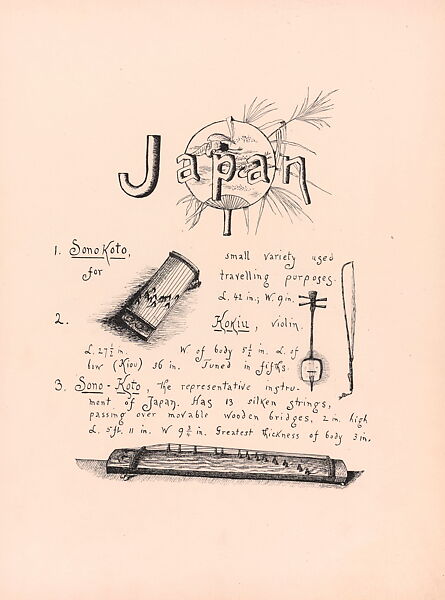 Japan
1. Sono Koto, small variety used
for travelling purposes.
L. 42 in.; W. 9 in.
2. Kokiu, violin.
L. 27½ in. W of body 5½ in. L. of
bow (Kiou) 36 in. Tuned in fifths.
3. Sono-Koto, the representative instru-
ment of Japan. Has 13 silken strings,
passing over movable wooden bridges, 2 in. high
L. 5 ft. 11 in. W 9¾ in. Greatest thickness of body 3 in.